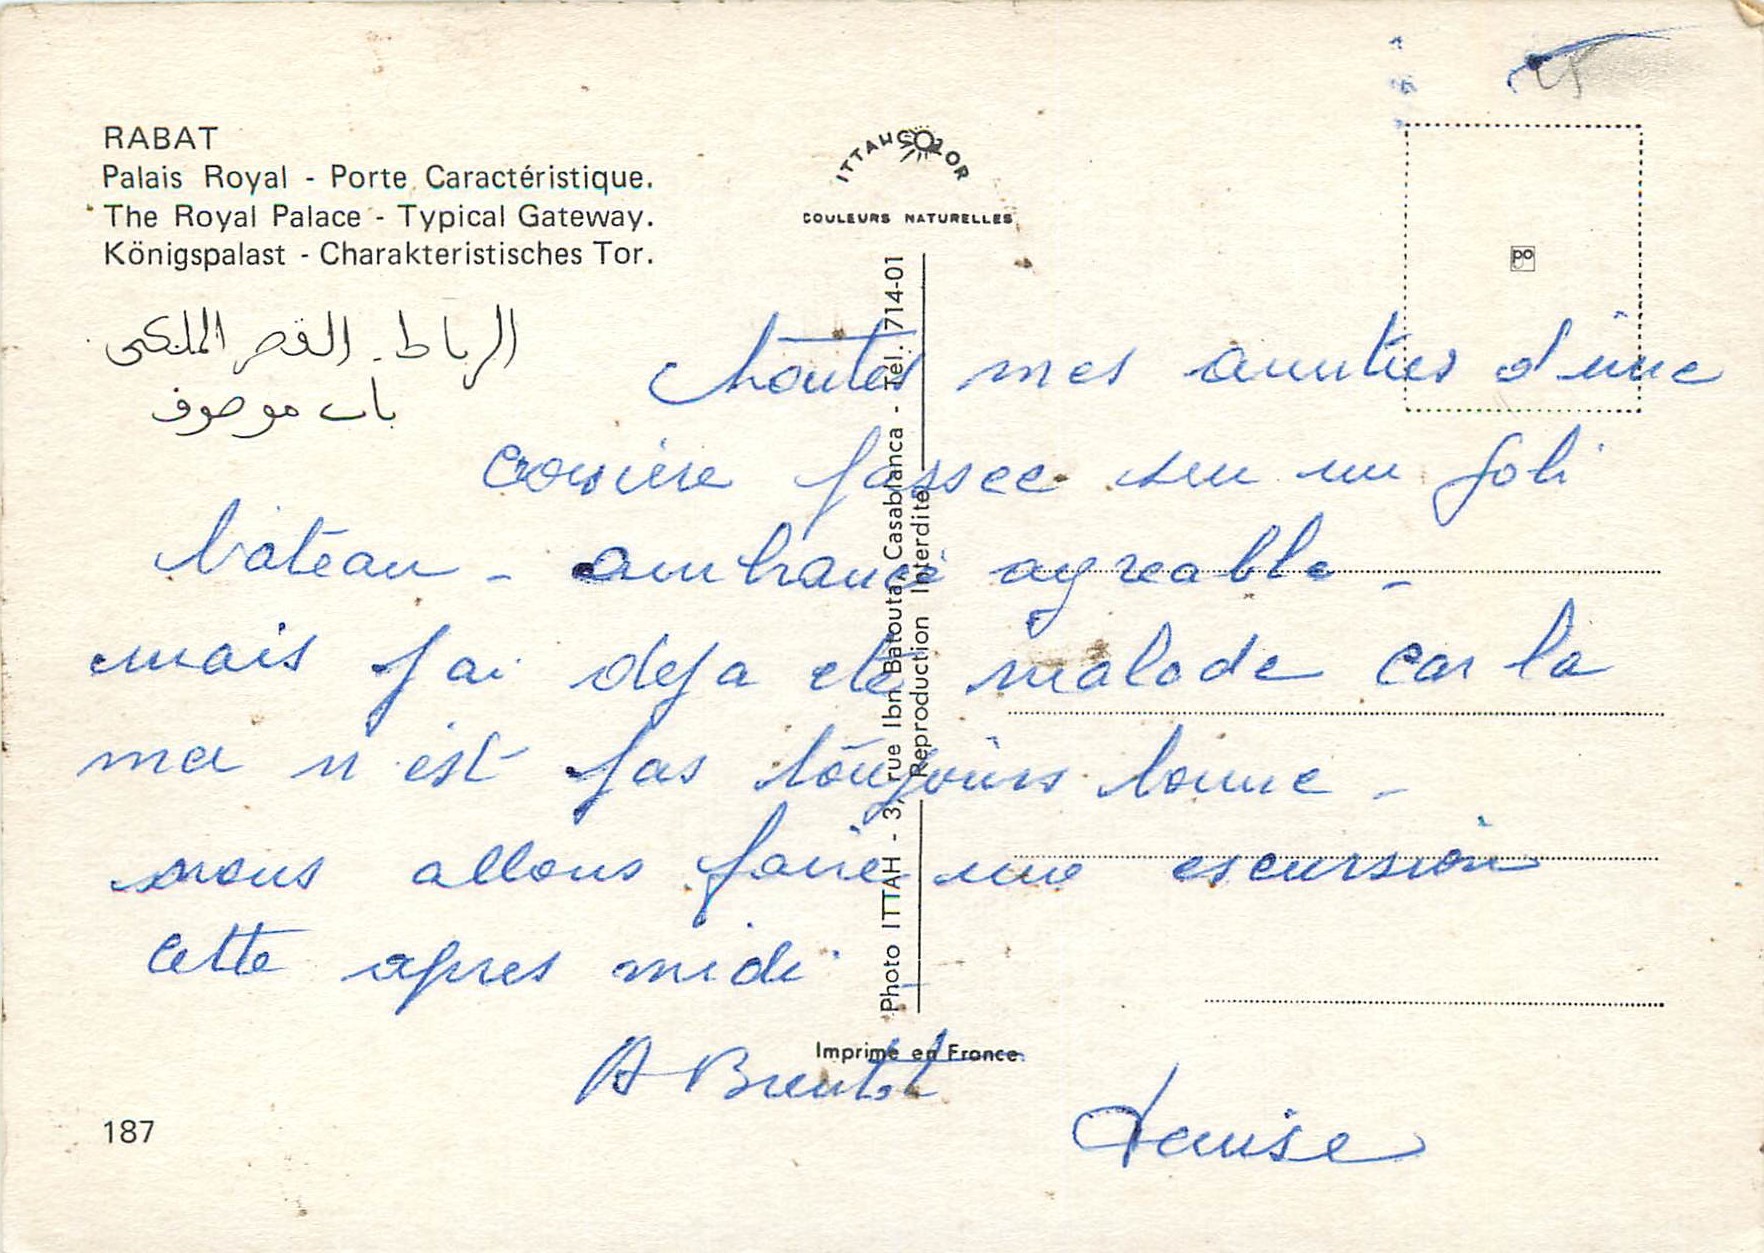 RABAT
Palais Royal - Porte Caractéristique.
The Royal Palace - Typical Gateway.
Königspalast - Charakteristisches Tor.
الرباط - القصر الملكي
باب موصوف
ITTAHCOLOR
COULEURS NATURELLES
Photo ITTAH - 3, rue Ibn Batouta, Casablanca - Tél. 714-01
Reproduction Interdite
toutes mes amities d'une
croisiere passee sur un joli
bateau - ambiance agreable -
mais j'ai deja ete malade car la
mer n'est pas toujours bonne -
nous allons faire une escursion
cette apres midi -
A Bientôt
Denise
Imprimé en France
187